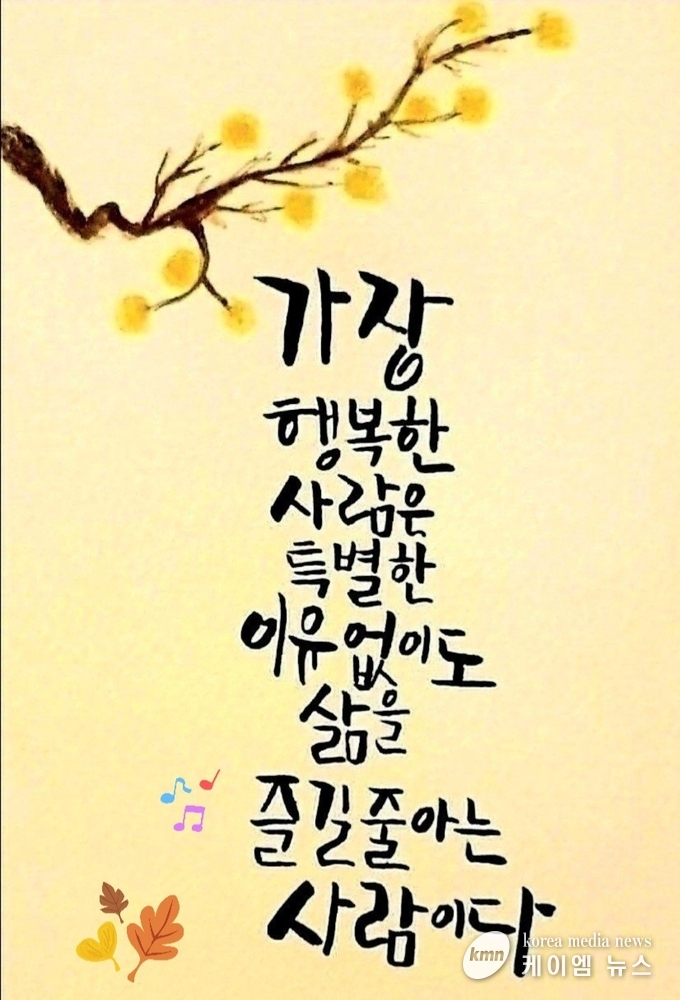 가장
행복한
사람은
특별한
이유없이도
삶을
즐길줄아는
사람이다
kmn
korea media news
케이엠 뉴스